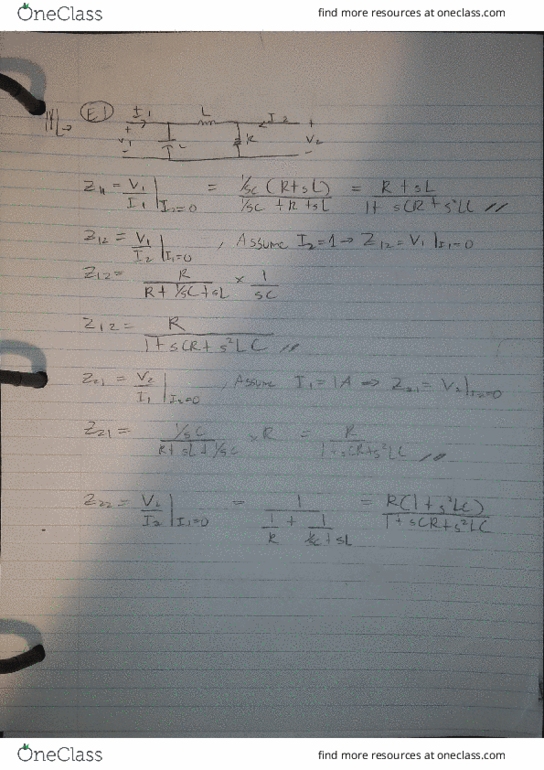 OneClass find more resources at oneclass.com
E1 I1 L I2
+ +
V1 R V2
- -
Z11 = V1/I1 |I2=0 = 1/sC (R+sL) / 1/sC + R + sL = R + sL / 1 + sCR + s²LC //
Z12 = V1/I2 |I1=0 , Assume I2=1 → Z12 = V1 |I1=0
Z12 = R / R + 1/sC + sL × 1/sC
Z12 = R / 1 + sCR + s²LC //
Z21 = V2/I1 |I2=0 , Assume I1 = 1A ⇒ Z21 = V2 |I2=0
Z21 = 1/sC / R + sL + 1/sC × R = R / 1 + sCR + s²LC //
Z22 = V2/I2 |I1=0 = 1 / 1/R + 1/ 1/sC + sL = R(1 + s²LC) / 1 + sCR + s²LC
OneClass find more resources at oneclass.com